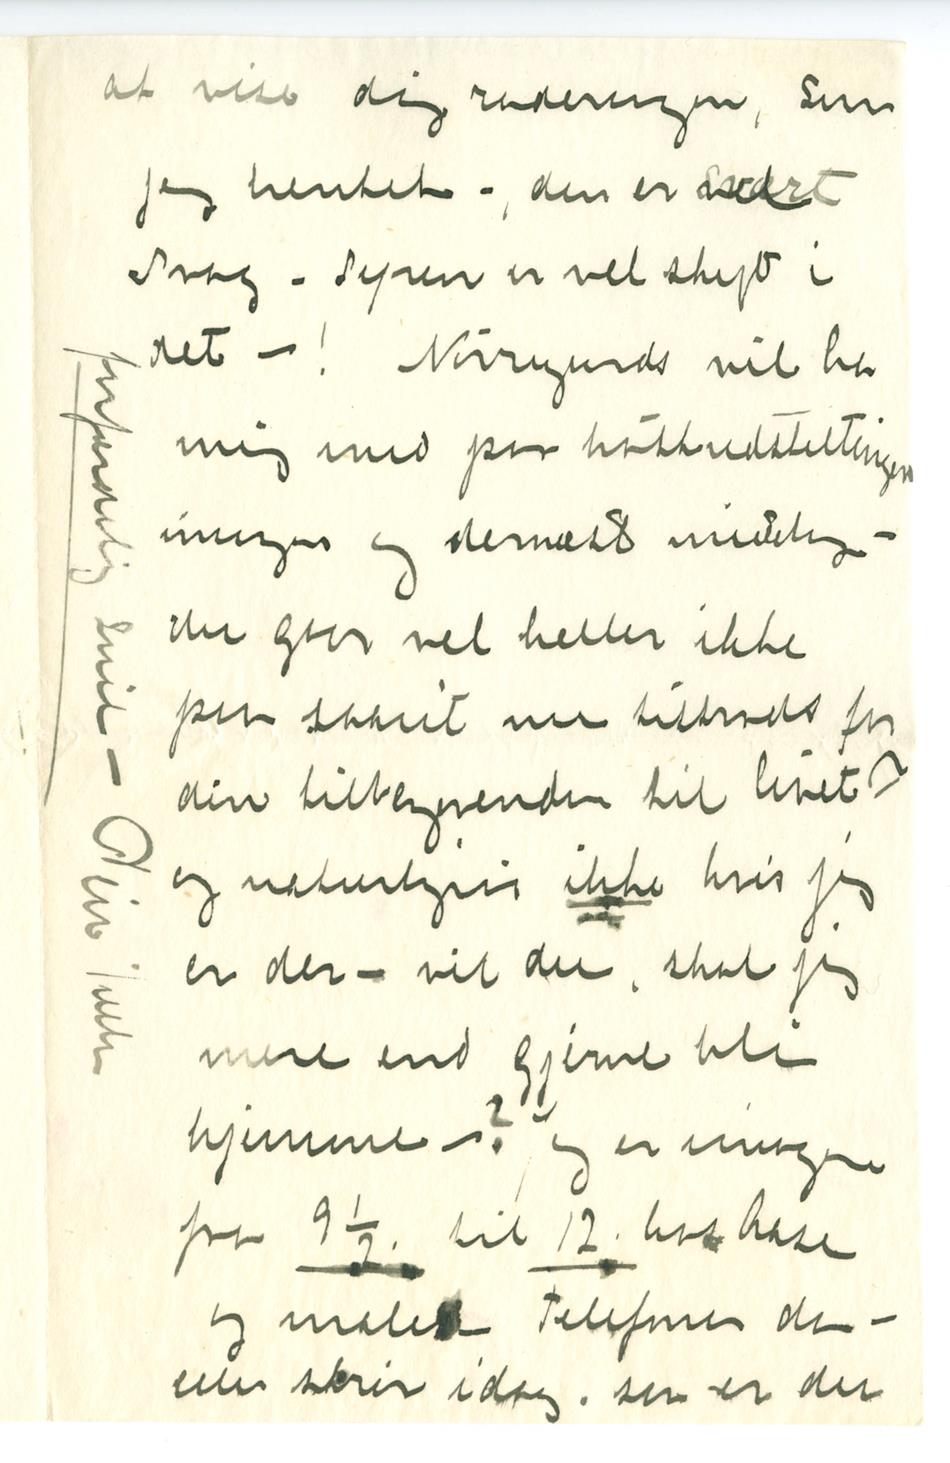 at vise dig raderingen, som
jeg hentet -, den er svært
svag - Syren er vel sluppet i
det - ! Nörregaards vil ha
mig med paa höstudstillingen
imorgen og dernæst middag -
du gaar vel heller ikke
paa saant nu tiltrods for
din tilbagevenden til livet?
og naturligvis ikke hvis jeg
er der - vil du, skal jeg
mere end gjerne bli
hjemme - ? Jeg er imorgen
fra 9 1/2. til 12. hos Hase
og maler Telefoner da -
eller skriv idag. saa er du
forfærdelig snil - Din